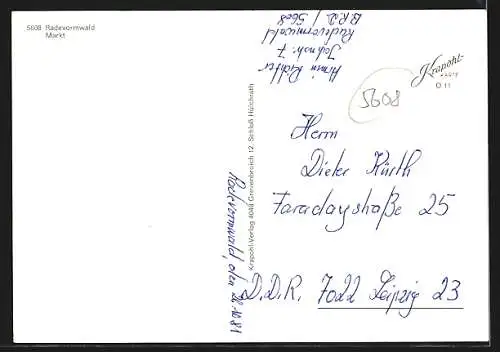 5608 Radevormwald
Markt
Armin Richter
Jahnstr. 7
Radevormwald
BRD / 5608
Krapohl-
KARTE
O 11
5608
Krapohl-Verlag 4048 Grevenbroich 12, Schloß Hülchrath
Radevormwald, den
Herrn
Dieter Kürth
Faradaystraße 25
D.D.R. 7022 Leipzig 23